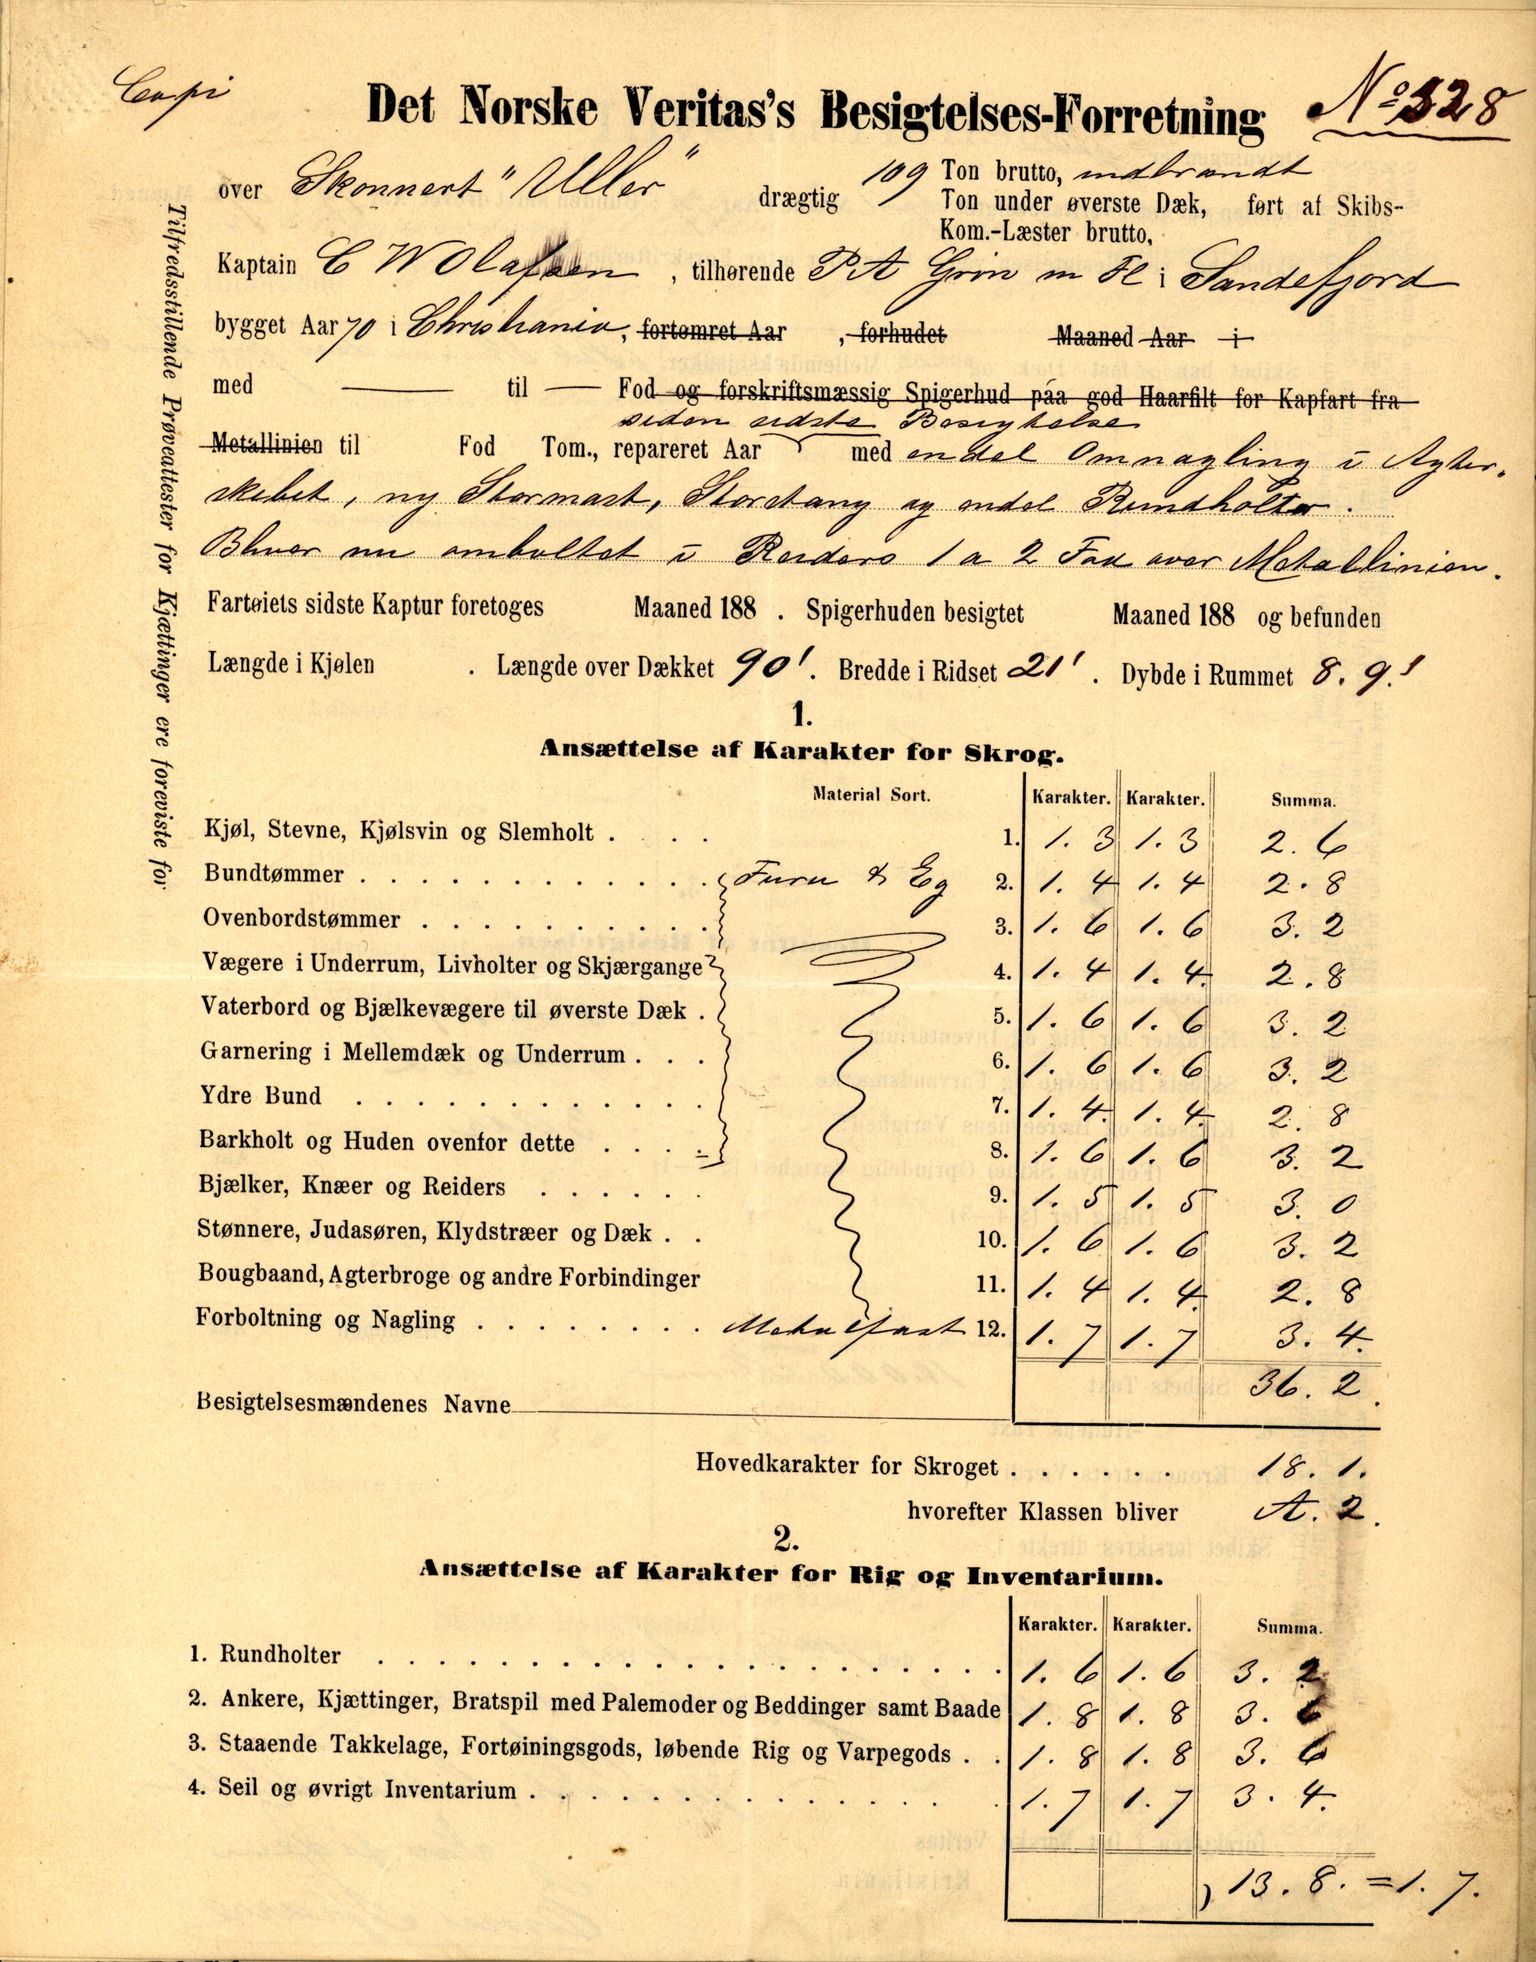 Copi
Det Norske Veritas's Besigtelses-Forretning No 328
over Skonnert "Uller" drægtig 109 Ton brutto, indbrændt
Ton under øverste Dæk, ført af Skibs-
Kom.-Læster brutto,
Kaptain C W Olafsen, tilhørende P A Grøn m Fl i Sandefjord
bygget Aar 70 i Christiania, fortømret Aar , forhudet Maaned Aar i
med — til — Fod og forskriftsmæssig Spigerhud paa god Haarfilt for Kapfart fra
siden sidste Besigtelse
Metallinien til Fod Tom., repareret Aar med endel Omnagling i Agter-
skibet, ny Stormast, Storstang og endel Rundholter.
Bliver nu omboltet i Reiders 1 a 2 Fod over Metallinien.
Fartøiets sidste Kaptur foretoges Maaned 188 . Spigerhuden besigtet Maaned 188 og befunden
Længde i Kjølen . Længde over Dækket 90'. Bredde i Ridset 21'. Dybde i Rummet 8. 9.'
Tilfredsstillende Prøveattester for Kjættinger ere foreviste for
1.
Ansættelse af Karakter for Skrog.
Material Sort. Karakter. Karakter. Summa.
Kjøl, Stevne, Kjølsvin og Slemholt . . . . 1. 1. 3 1. 3 2. 6
Bundtømmer . . . . . . . . . . . . Furu & Eg 2. 1. 4 1. 4 2. 8
Ovenbordstømmer . . . . . . . . . . 3. 1. 6 1. 6 3. 2
Vægere i Underrum, Livholter og Skjærgange 4. 1. 4 1. 4. 2. 8
Vaterbord og Bjælkevægere til øverste Dæk . 5. 1. 6 1. 6 3. 2
Garnering i Mellemdæk og Underrum . . . 6. 1. 6 1. 6 3. 2
Ydre Bund . . . . . . . . . . . . 7. 1. 4. 1. 4. 2. 8
Barkholt og Huden ovenfor dette . . . . 8. 1. 6 1. 6 3. 2
Bjælker, Knæer og Reiders . . . . . . 9. 1. 5 1. 5 3. 0
Stønnere, Judasøren, Klydstræer og Dæk . . 10. 1. 6 1. 6 3. 2
Bougbaand, Agterbroge og andre Forbindinger 11. 1. 4 1. 4. 2. 8
Forboltning og Nagling . . . . . . . . Metalfast 12. 1. 7 1. 7 3. 4.
36. 2.
Besigtelsesmændenes Navne
Hovedkarakter for Skroget . . . . . . 18. 1.
hvorefter Klassen bliver A. 2.
2.
Ansættelse af Karakter for Rig og Inventarium.
Karakter. Karakter. Summa.
1. Rundholter . . . . . . . . . . . . . . . . . . . . 1. 6 1. 6 3. 2
2. Ankere, Kjættinger, Bratspil med Palemoder og Beddinger samt Baade 1. 8 1. 8 3. 6
3. Staaende Takkelage, Fortøiningsgods, løbende Rig og Varpegods . . 1. 8 1. 8 3. 6
4. Seil og øvrigt Inventarium . . . . . . . . . . . . . . 1. 7 1. 7 3. 4.
13. 8. = 1. 7.